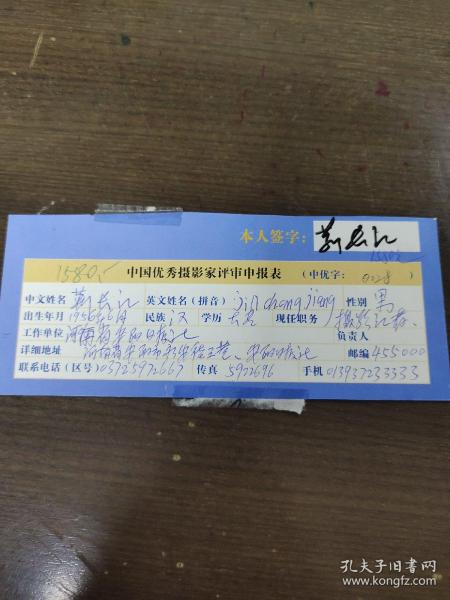 本人签字：靳长江
15802
1580.5 中国优秀摄影家评审申报表 （申优字：0228）
中文姓名 靳长江 英文姓名（拼音）jin chang jiang 性别 男
出生年月 1956年 月 民族 汉 学历 大专 现任职务 摄影记者
工作单位 河南省安阳日报社 负责人
详细地址 河南省安阳市 安阳日报社 邮编 455000
联系电话（区号）03725972667 传真 5922696 手机 013937233333
孔夫子旧书网
www.kongfz.com